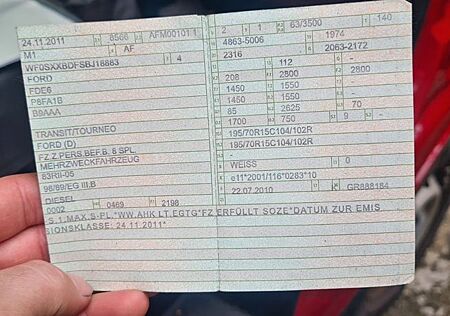 24.11.2011 8566 AFM00101 1
M1 AF
WF0SXXBDFSBJ18883 4
FORD
FDE6
P8FA1B
B9AAA
TRANSIT/TOURNEO
FORD (D)
FZ.Z.PERS.BEF.B. 8 SPL.
MEHRZWECKFAHRZEUG
83RII-05
98/69/EG III,B
DIESEL
0002 0469 2198
2 1 63/3500 140
4863-5006 1974
2316 2063-2172
- 112 -
208 2800 2800
1450 1550 -
1450 1550 -
85 2625 70
1700 750 9 -
195/70R15C104/102R
195/70R15C104/102R
-
WEISS 0
e11*2001/116*0283*10
22.07.2010 K GR888184
S.1.MAX.S-PL.*WW.AHK LT.EGTG*FZ ERFÜLLT SOZE*DATUM ZUR EMIS
SIONSKLASSE: 24.11.2011*